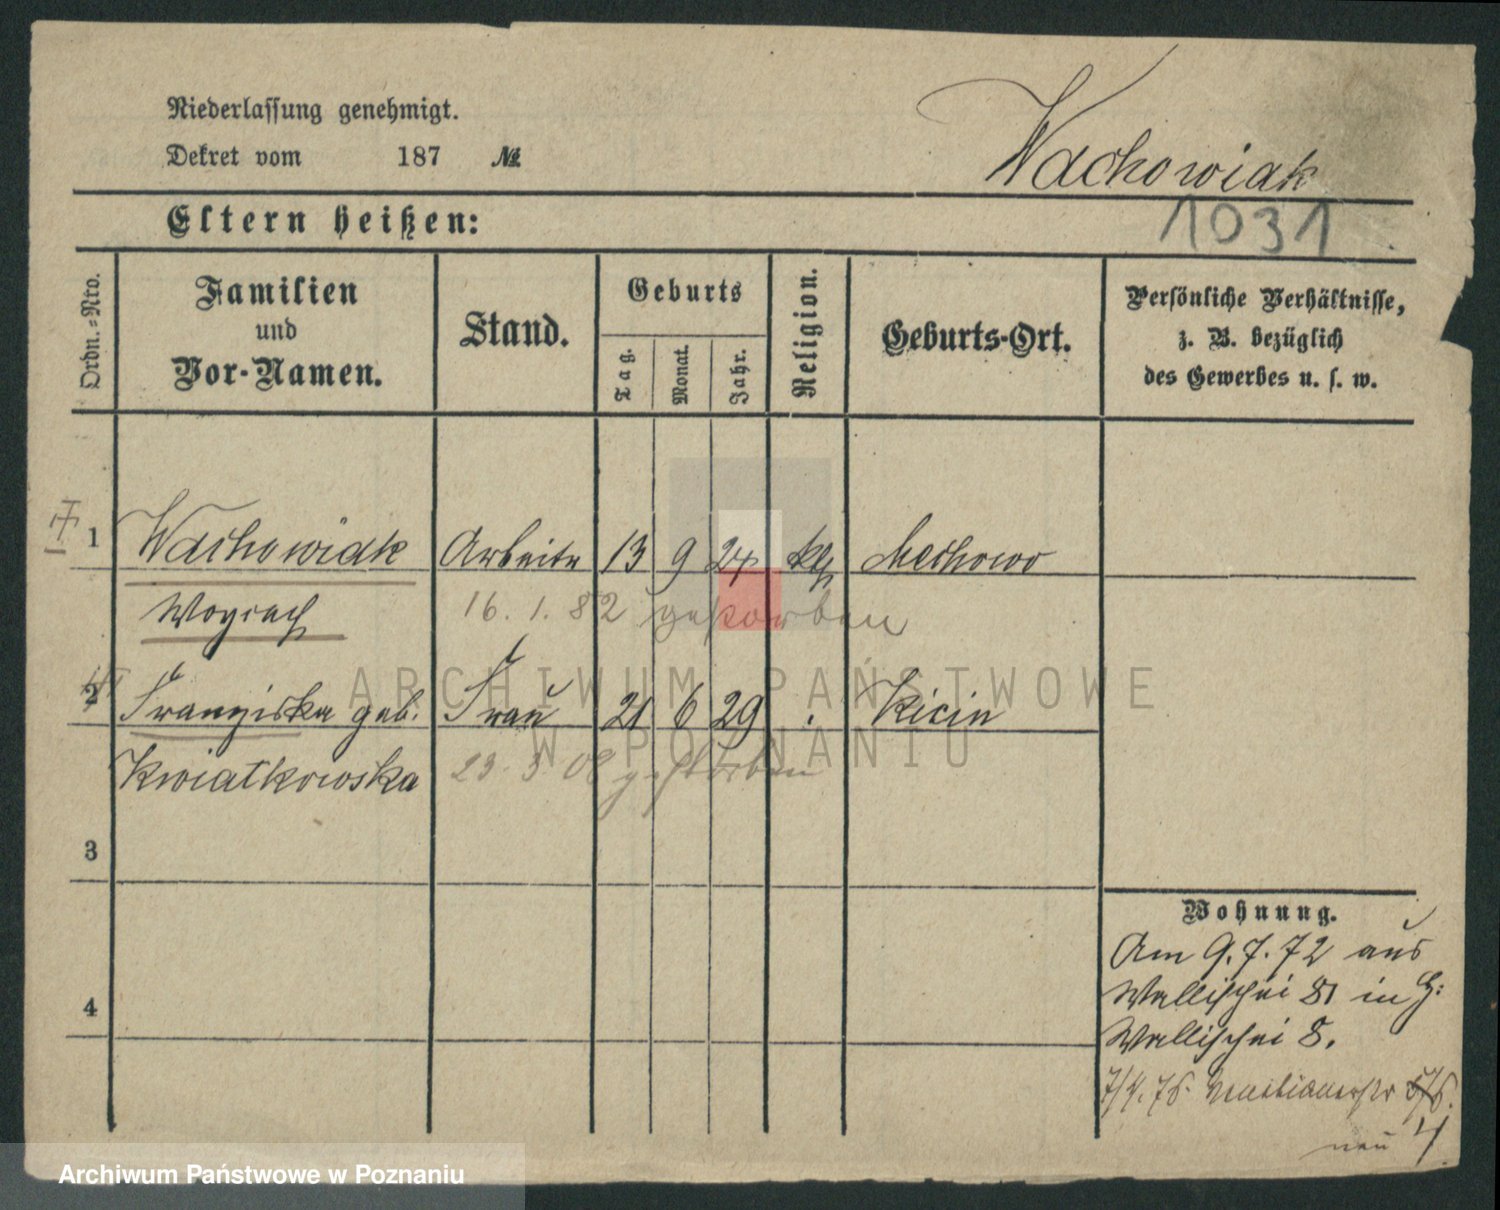 Niederlassung genehmigt.
Dekret vom 187 №
Wachowiak
Eltern heißen:
1031
Ordn.-Nro.
Familien
und
Vor-Namen.
Stand.
Geburts
Tag.
Monat.
Jahr.
Religion.
Geburts-Ort.
Persönliche Verhältnisse,
z. B. bezüglich
des Gewerbes u. s. w.
1 Wachowiak Arbeiter 13 9 24 kth Mechowo
Woyciech 16. 1. 82 gestorben
2 Franziska geb. Frau 21 6 29 . Kicin
Kwiatkowska 23. 3 08 gestorben
3
4
Wohnung.
Am 9. 7. 72 aus
Wallischei 81 in
Wallischei 8.
neu 4
ARCHIWUM PAŃSTWOWE
W POZNANIU
Archiwum Państwowe w Poznaniu